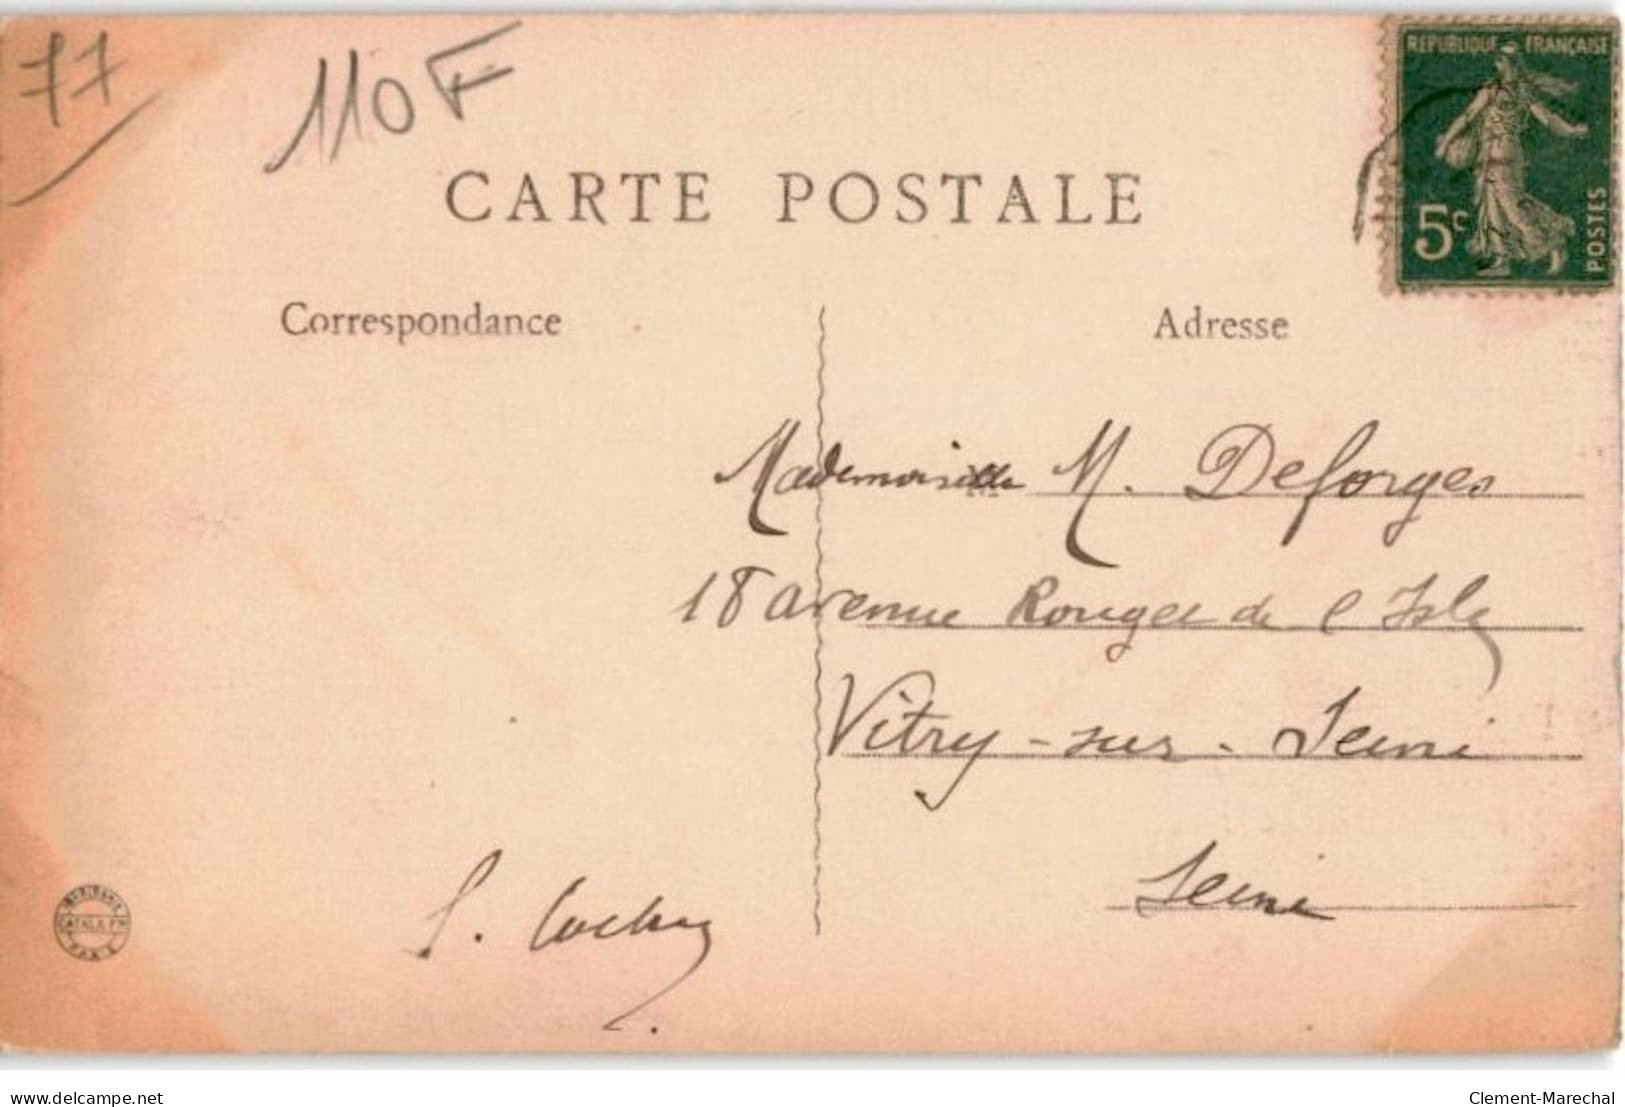 77
110 F
CARTE POSTALE
REPUBLIQUE FRANÇAISE
5c
POSTES
Correspondance
Adresse
Mademoiselle M. Deforges
18 avenue Rouget de l'Isle
Vitry-sur-Seine
Seine
PARIS
delcampe.net
Clement-Marechal